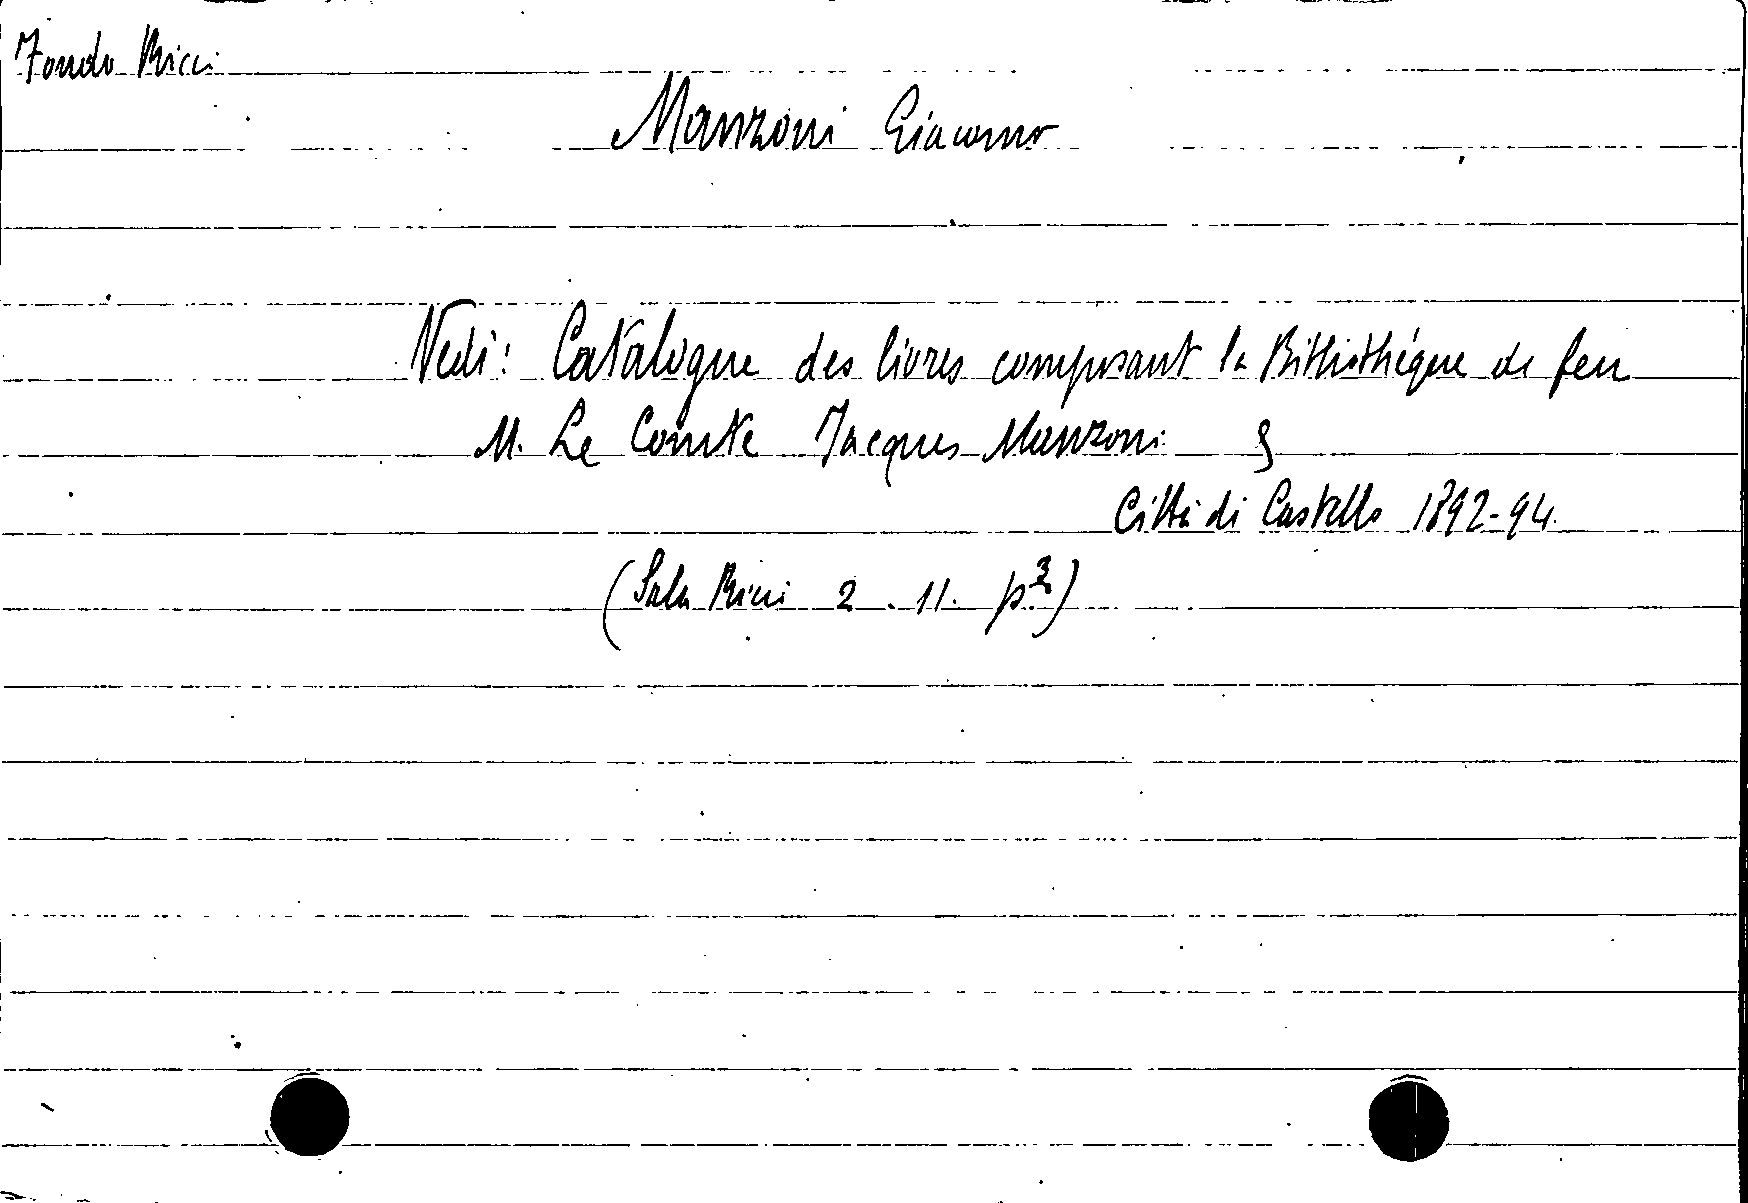 Fondo Ricci
Manzoni Giacomo
Vedi: Catalogue des livres composant la Bibliothéque de feu
M. Le Comte Jacques Manzoni §
Città di Castello 1892-94.
(Sala Ricci 2. 11. p³)